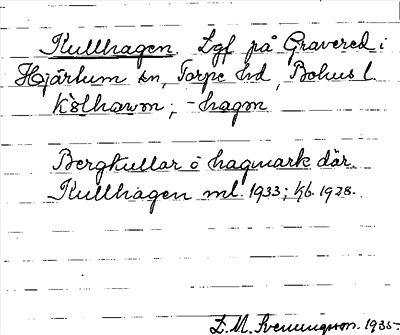 Kullhagen. Lgf på Gravered i
Hjärtum sn, Torpe hd, Bohus l.
kölhawɷn; -hagɷn
Bergkullar o hagmark där.
Kullhagen ml. 1933; kb. 1928.
D. M. Svenungsson. 1935-